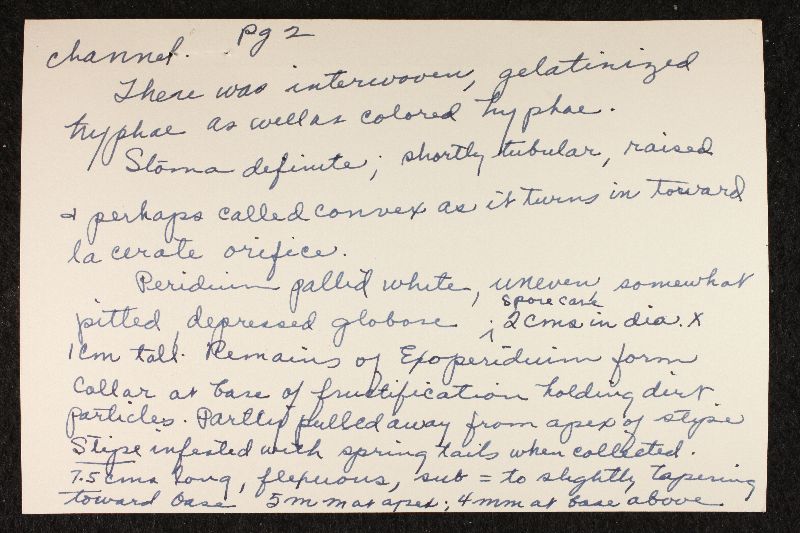 pg 2
channel.
There was interwoven, gelatinized
hyphae as well as colored hyphae.
Stoma definite; shortly tubular, raised
& perhaps called convex as it turns in toward
lacerate orifice.
Peridium pallid white, uneven, somewhat
spore cask
pitted, depressed globose ; 2 cms in dia. x
1 cm tall. Remains of Exoperidium form
collar at base of fructification holding dirt
particles. Partly pulled away from apex of stipe
Stipe infested with spring tails when collected.
7.5 cms long, flexuous, sub = to slightly tapering
toward base 5 mm at apex; 4 mm at base above